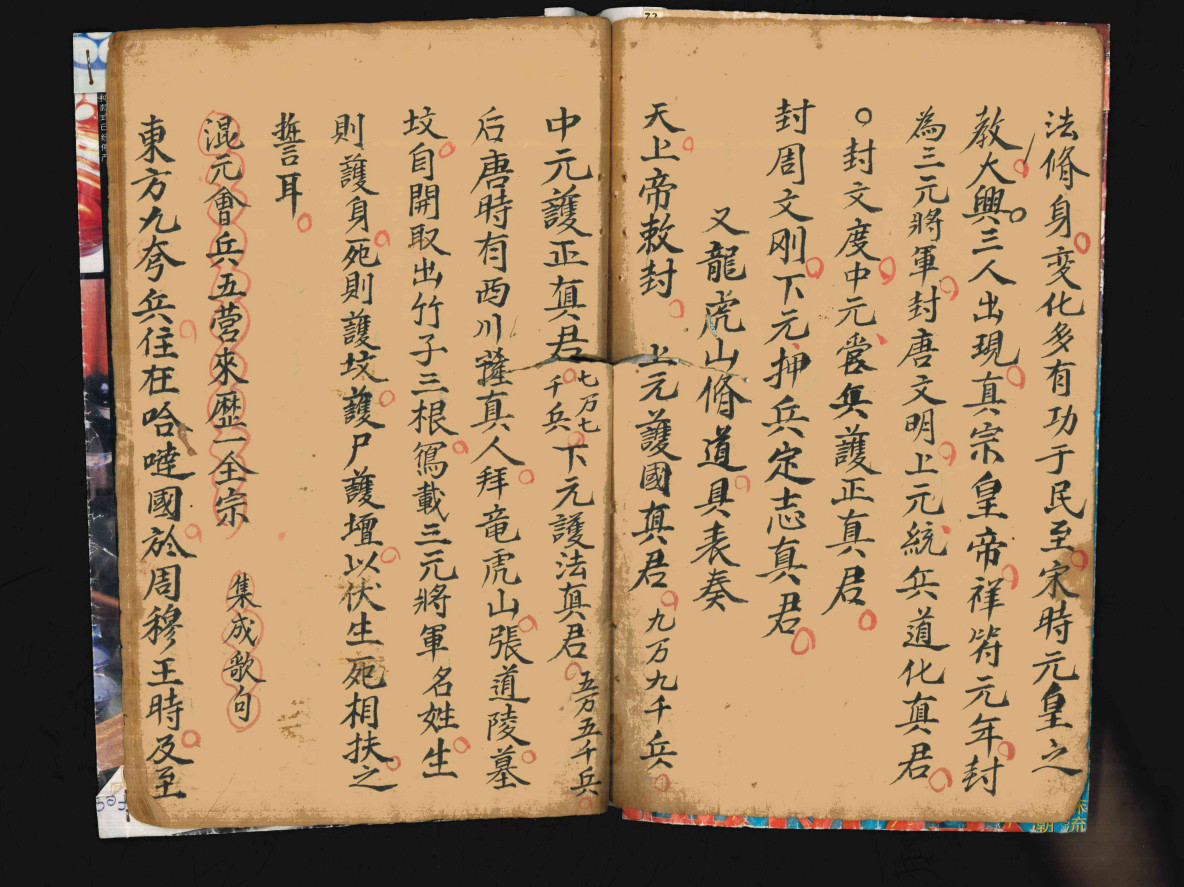 法脩身変化多有功于民至宋時元皇之
教大興三人出現真宗皇帝祥符元年封
為三元將軍封唐文明上元統兵道化真君
封文度中元掌兵護正真君
封周文刚下元押兵定志真君
又龍虎山脩道具表奏
天上帝敕封 上元護國真君 九万九千兵
中元護正真君 七万七千兵 下元護法真君 五万五千兵
后唐時有西川薩真人拜竜虎山張道陵墓
坟自開取出竹子三根寫載三元將軍名姓生
則護身死則護坟護尸護壇以伏生死相扶之
誓耳
混元會兵五营來歷一全宗 集成歌句
東方九夸兵住在哈噠國於周穆王時及至
72